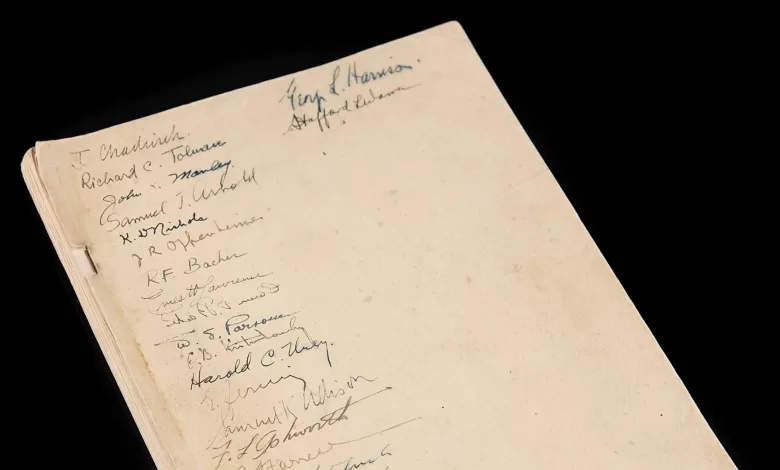 Geor. L. Harrison.
Stafford L Warren
J. Chadwick.
Richard C. Tolman
John H. Manley.
Samuel T. Arnold
K. D Nichols
J R Oppenheimer
R F Bacher
Ernest O Lawrence
W. S. Parsons
Harold C. Urey.
E. Fermi
Samuel K Allison
F. L Ashworth